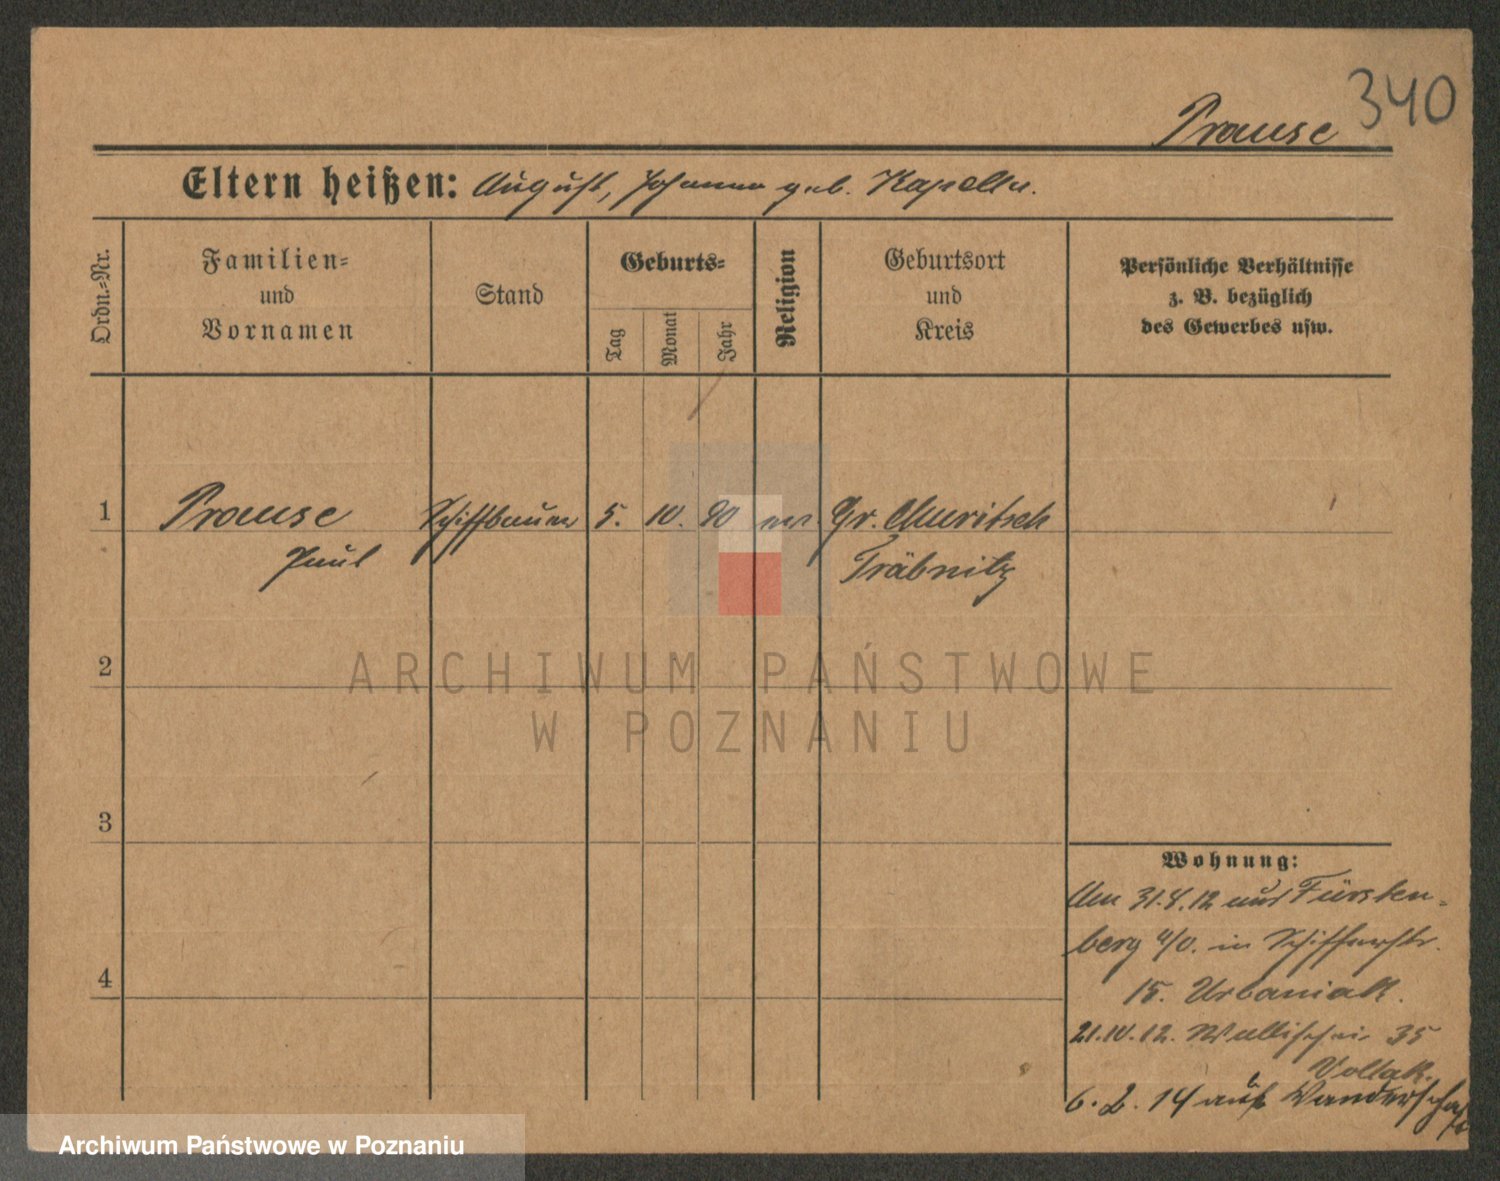 340
Prause
Eltern heißen: August, Johanna geb. Kapelle.
Ordn.-Nr.
Familien-
und
Vornamen
Stand
Geburts-
Tag
Monat
Jahr
Religion
Geburtsort
und
Kreis
Persönliche Verhältnisse
z. B. bezüglich
des Gewerbes usw.
1
Prause Schiffbauer 5. 10. 90 ev Gr. Muritsch
Paul Träbnitz
ARCHIWUM PAŃSTWOWE
W POZNANIU
2
3
4
Wohnung:
Am 31.8.12 aus Fürsten-
berg a/O. in Schifferstr.
15. Urbaniak.
21.10.12. Wallischei 35
6.2.14 auf Wanderschaft
Archiwum Państwowe w Poznaniu